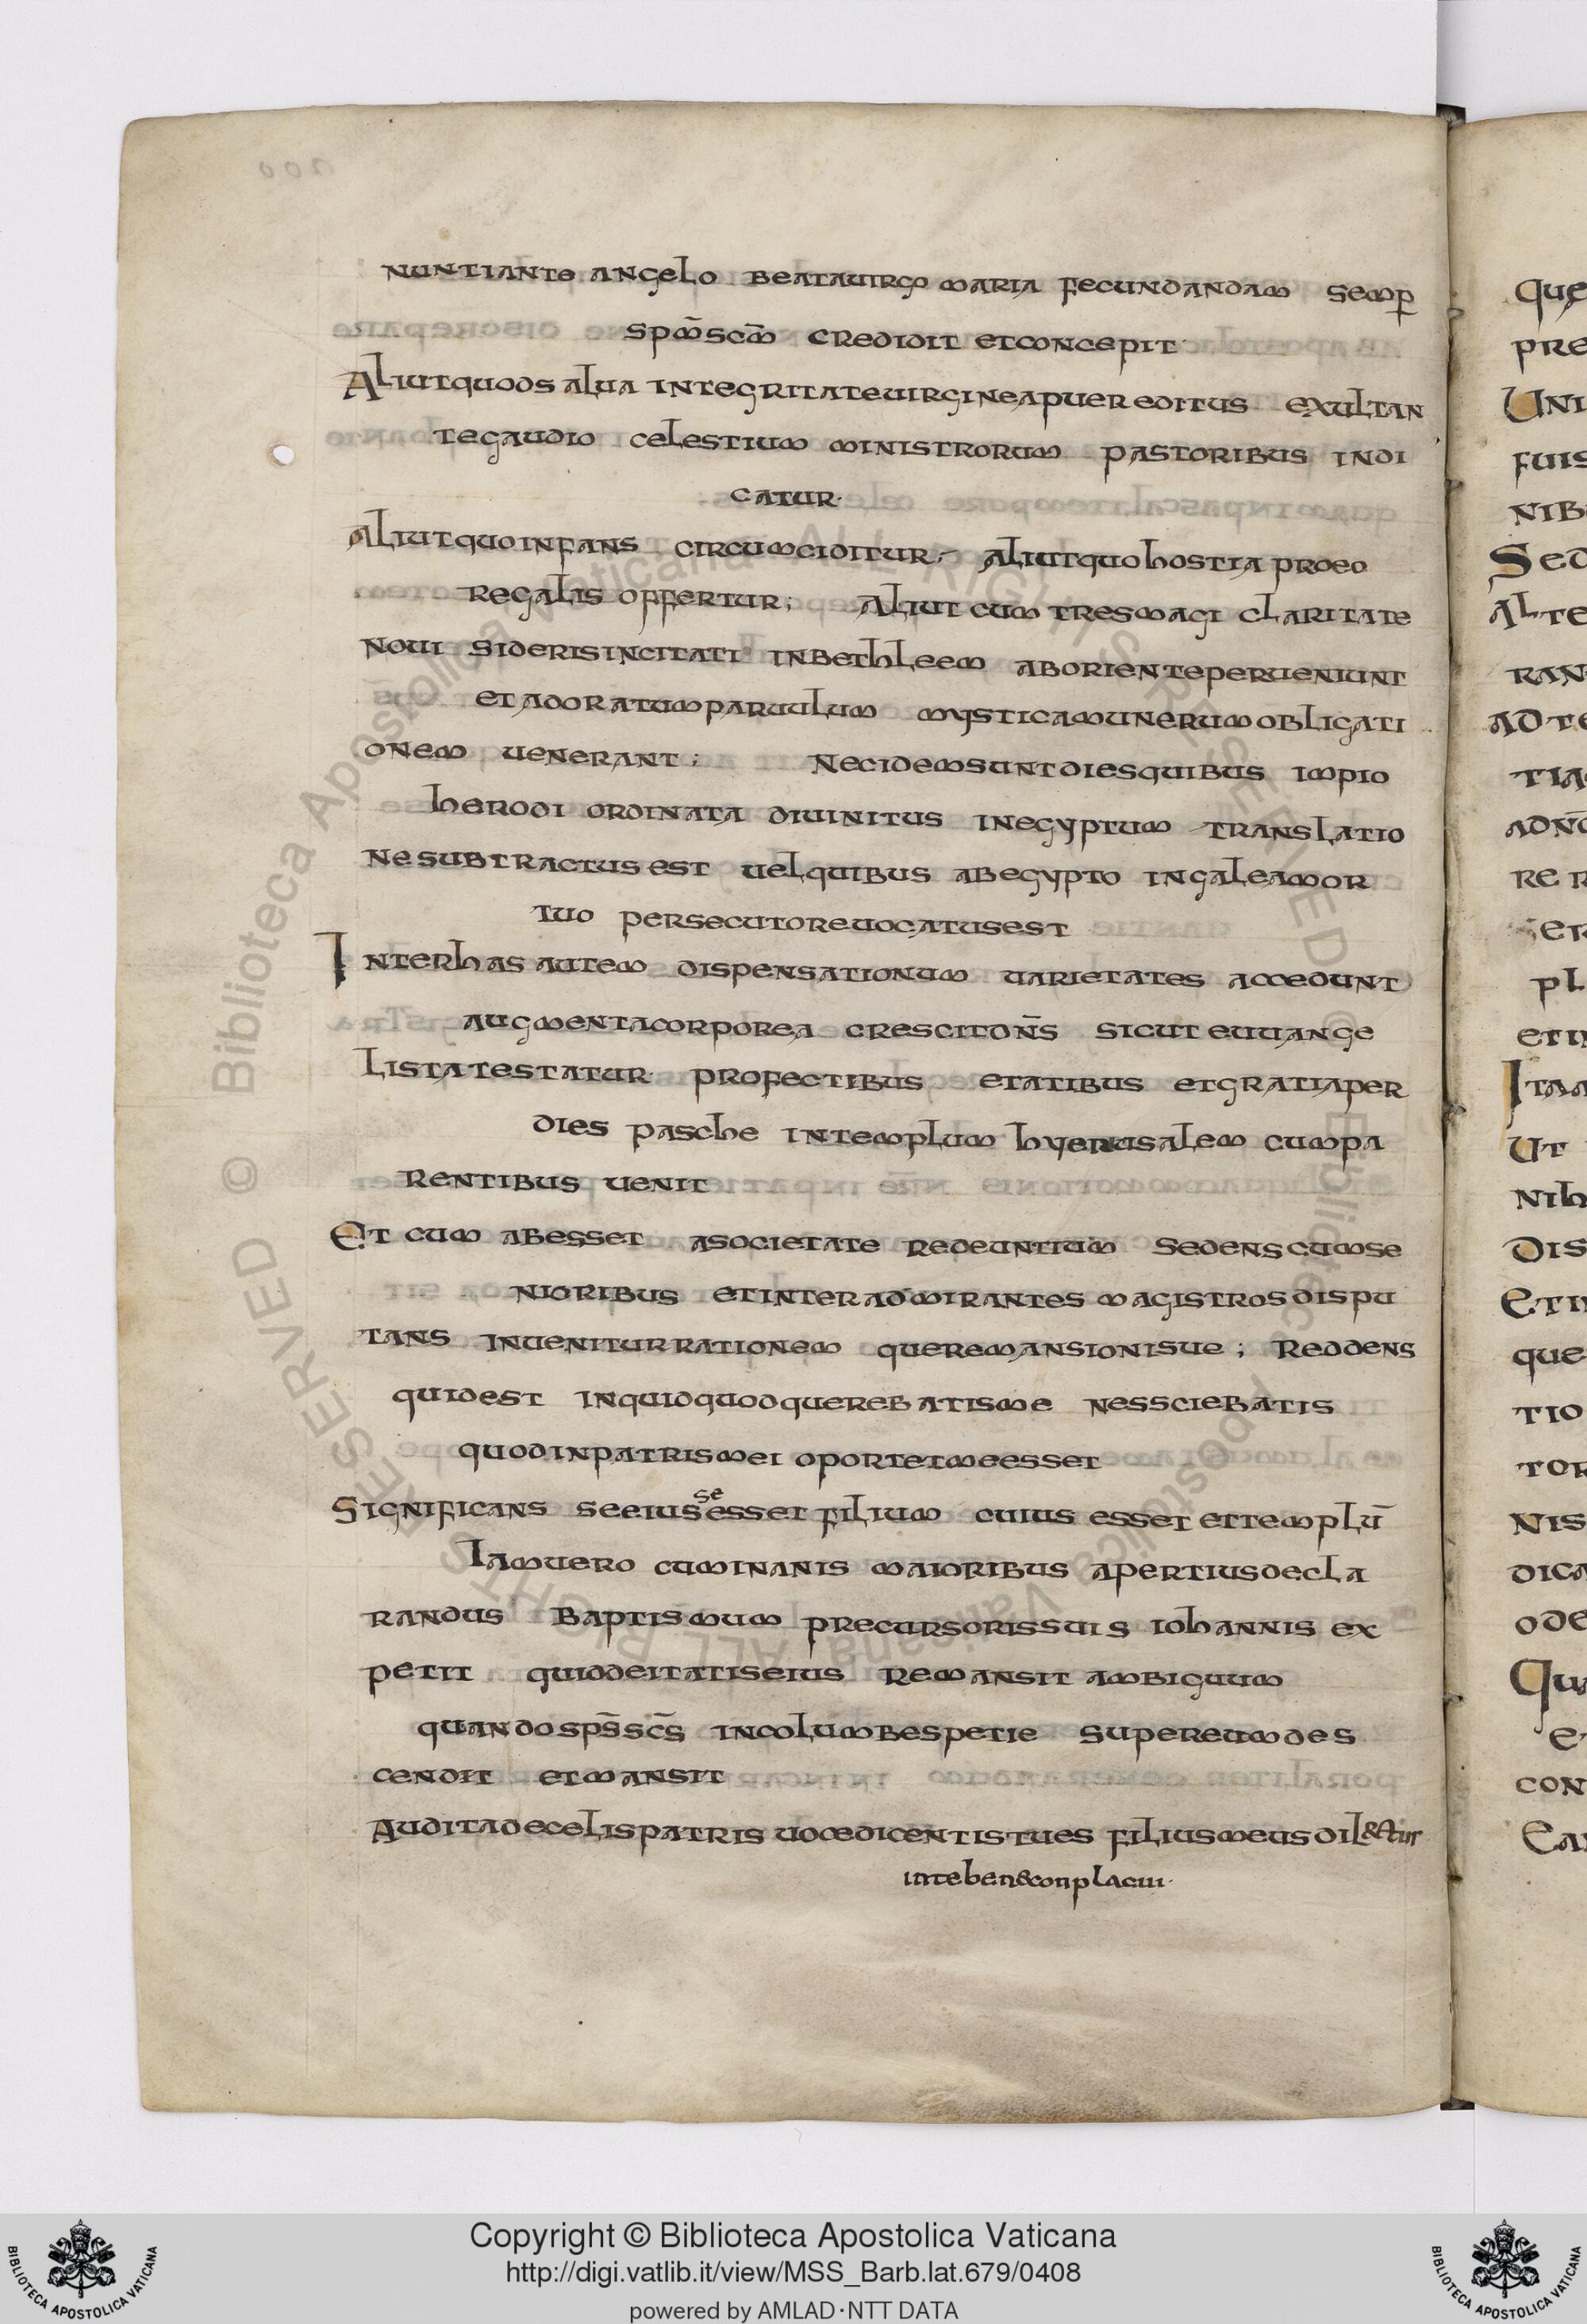 nuntiante angelo beatauirgo maria fecundandam semp̄
spm̄scm̄ credidit etconcepit
Aliutquods alua integritateuirgineapuer editus exultan
tegaudio celestium ministrorum pastoribus indi
catur·
aliutquoinfans circumciditur;– aliutquohostia proeo
regalis offertur; aliut cum tresmagi claritate
noui siderisincitati inbethleem aborienteperueniunt
et adoratumparuulum mysticamunerumobligati
onem uenerant; Necidemsuntdiesquibus impio
herodi ordinata diuinitus inegyptum translatio
nesubtractusest uelquibus abegypto ingaleamor
tuo persecutoreuocatusest
Interhas autem dispensationum uarietates accedunt
augmentacorporea crescitdn̄s sicut euuange
listatestatur profectibus etatibus etgratiaper
dies pasche intemplum hyerusalem cumpa
rentibus uenit
Et cum abesset asocietate redeuntium sedenscumse
nioribus etinter admirantes magistrosdispu
tans inueniturrationem queremansionisue; Reddens
quidest inquidquodquerebatisme nessciebatis
quodinpatrismei oportetmeesset
Significans seeiusseesset filium cuius esset ettemplū
Iamuero cuminanis maioribus apertiusdecla
randus baptismum precursorissuis iohannis ex
petit quiddeitatiseius remansit ambiguum
quandosps̄scs̄ incolumbespetie supereumdes
cendit etmansit
Auditadecelispatris uocedicentistues filiusmeusdil&tur
intebeneconplacui·
que
pre
Uni
fuis
nib
Sed
alte
ran
adte
tia
adn̄
re r
er
pl
etin
Itaa
Ut
nih
Dis
Etin
que
tio
tor
nis
dica
ode
Qua
e
con
Ea
Copyright © Biblioteca Apostolica Vaticana
http://digi.vatlib.it/view/MSS_Barb.lat.679/0408
powered by AMLAD·NTT DATA
BIBLIOTECA APOSTOLICA VATICANA
BIBLIOTECA APOSTOLICA VATICANA